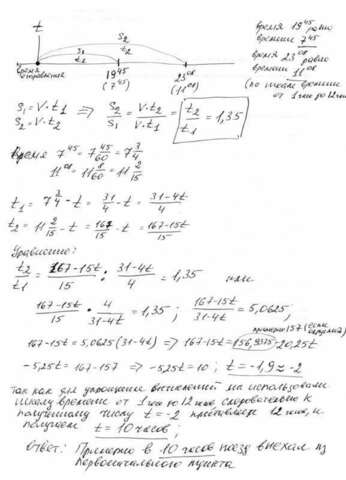 t
S₂
t₂
S₁
t₂
время отправления
19⁴⁵
(7⁴⁵)
23⁰⁸
(11⁰⁸)
время 19⁴⁵ равно
времени 7⁴⁵
время 23⁰⁸ равно
времени 11⁰⁸
(по шкале времени
от 1 час до 12 час
S₁ = V·t₁
S₂ = V·t₂ ⇒ S₂/S₁ = V·t₂/V·t₁ = t₂/t₁ = 1,35
Время 7⁴⁵ = 7 45/60 = 7 3/4
11⁰⁸ = 11 8/60 = 11 2/15
t₁ = 7 3/4 - t = 31/4 - t = 31-4t/4
t₂ = 11 2/15 - t = 167/15 - t = 167-15t/15
Уравнение:
t₂/t₁ = 167-15t/15 : 31-4t/4 = 1,35 или
167-15t/15 · 4/31-4t = 1,35 ; 167-15t/31-4t = 5,0625 ;
примерно 157 (если округлить)
167-15t = 5,0625(31-4t) ⇒ 167-15t = 156,9375 - 20,25t
-5,25t = 167-157 ⇒ -5,25t = 10 ; t = -1,9 ≈ -2
так как для упрощения вычислений мы использовали
шкалу времени от 1 час до 12 час, следовательно к
полученному числу t = -2 прибавляем 12 час, и
получаем t = 10 часов ;
Ответ: Примерно в 10 часов поезд выехал из
первоначального пункта